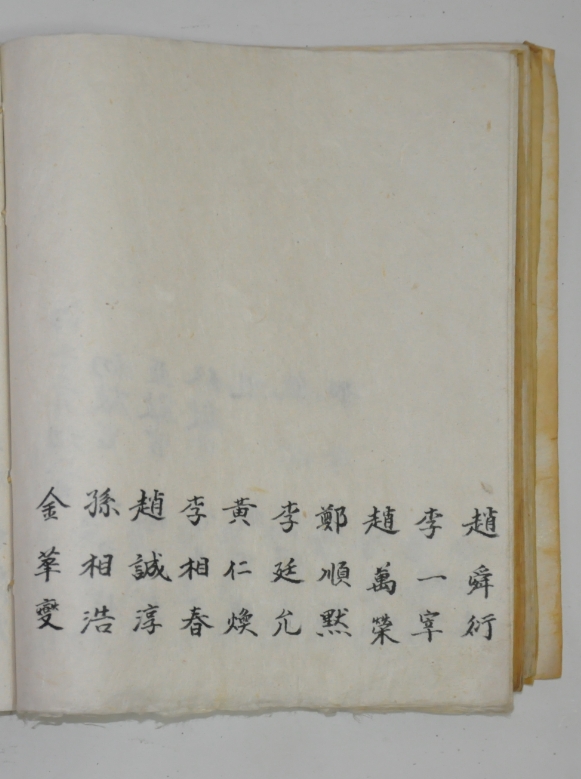 趙舜衍
李一宰
趙萬榮
鄭順默
李廷允
黃仁煥
李相春
趙誠淳
孫相浩
金華變